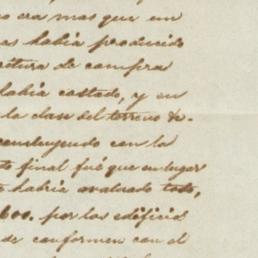 era mas que un
habia producido
ritura de compra
habia costado, y en
la clase del terreno &.
concluyendo con la
final fué que en lugar
habria avaluado todo,
600. por los edificios
de conformen con el